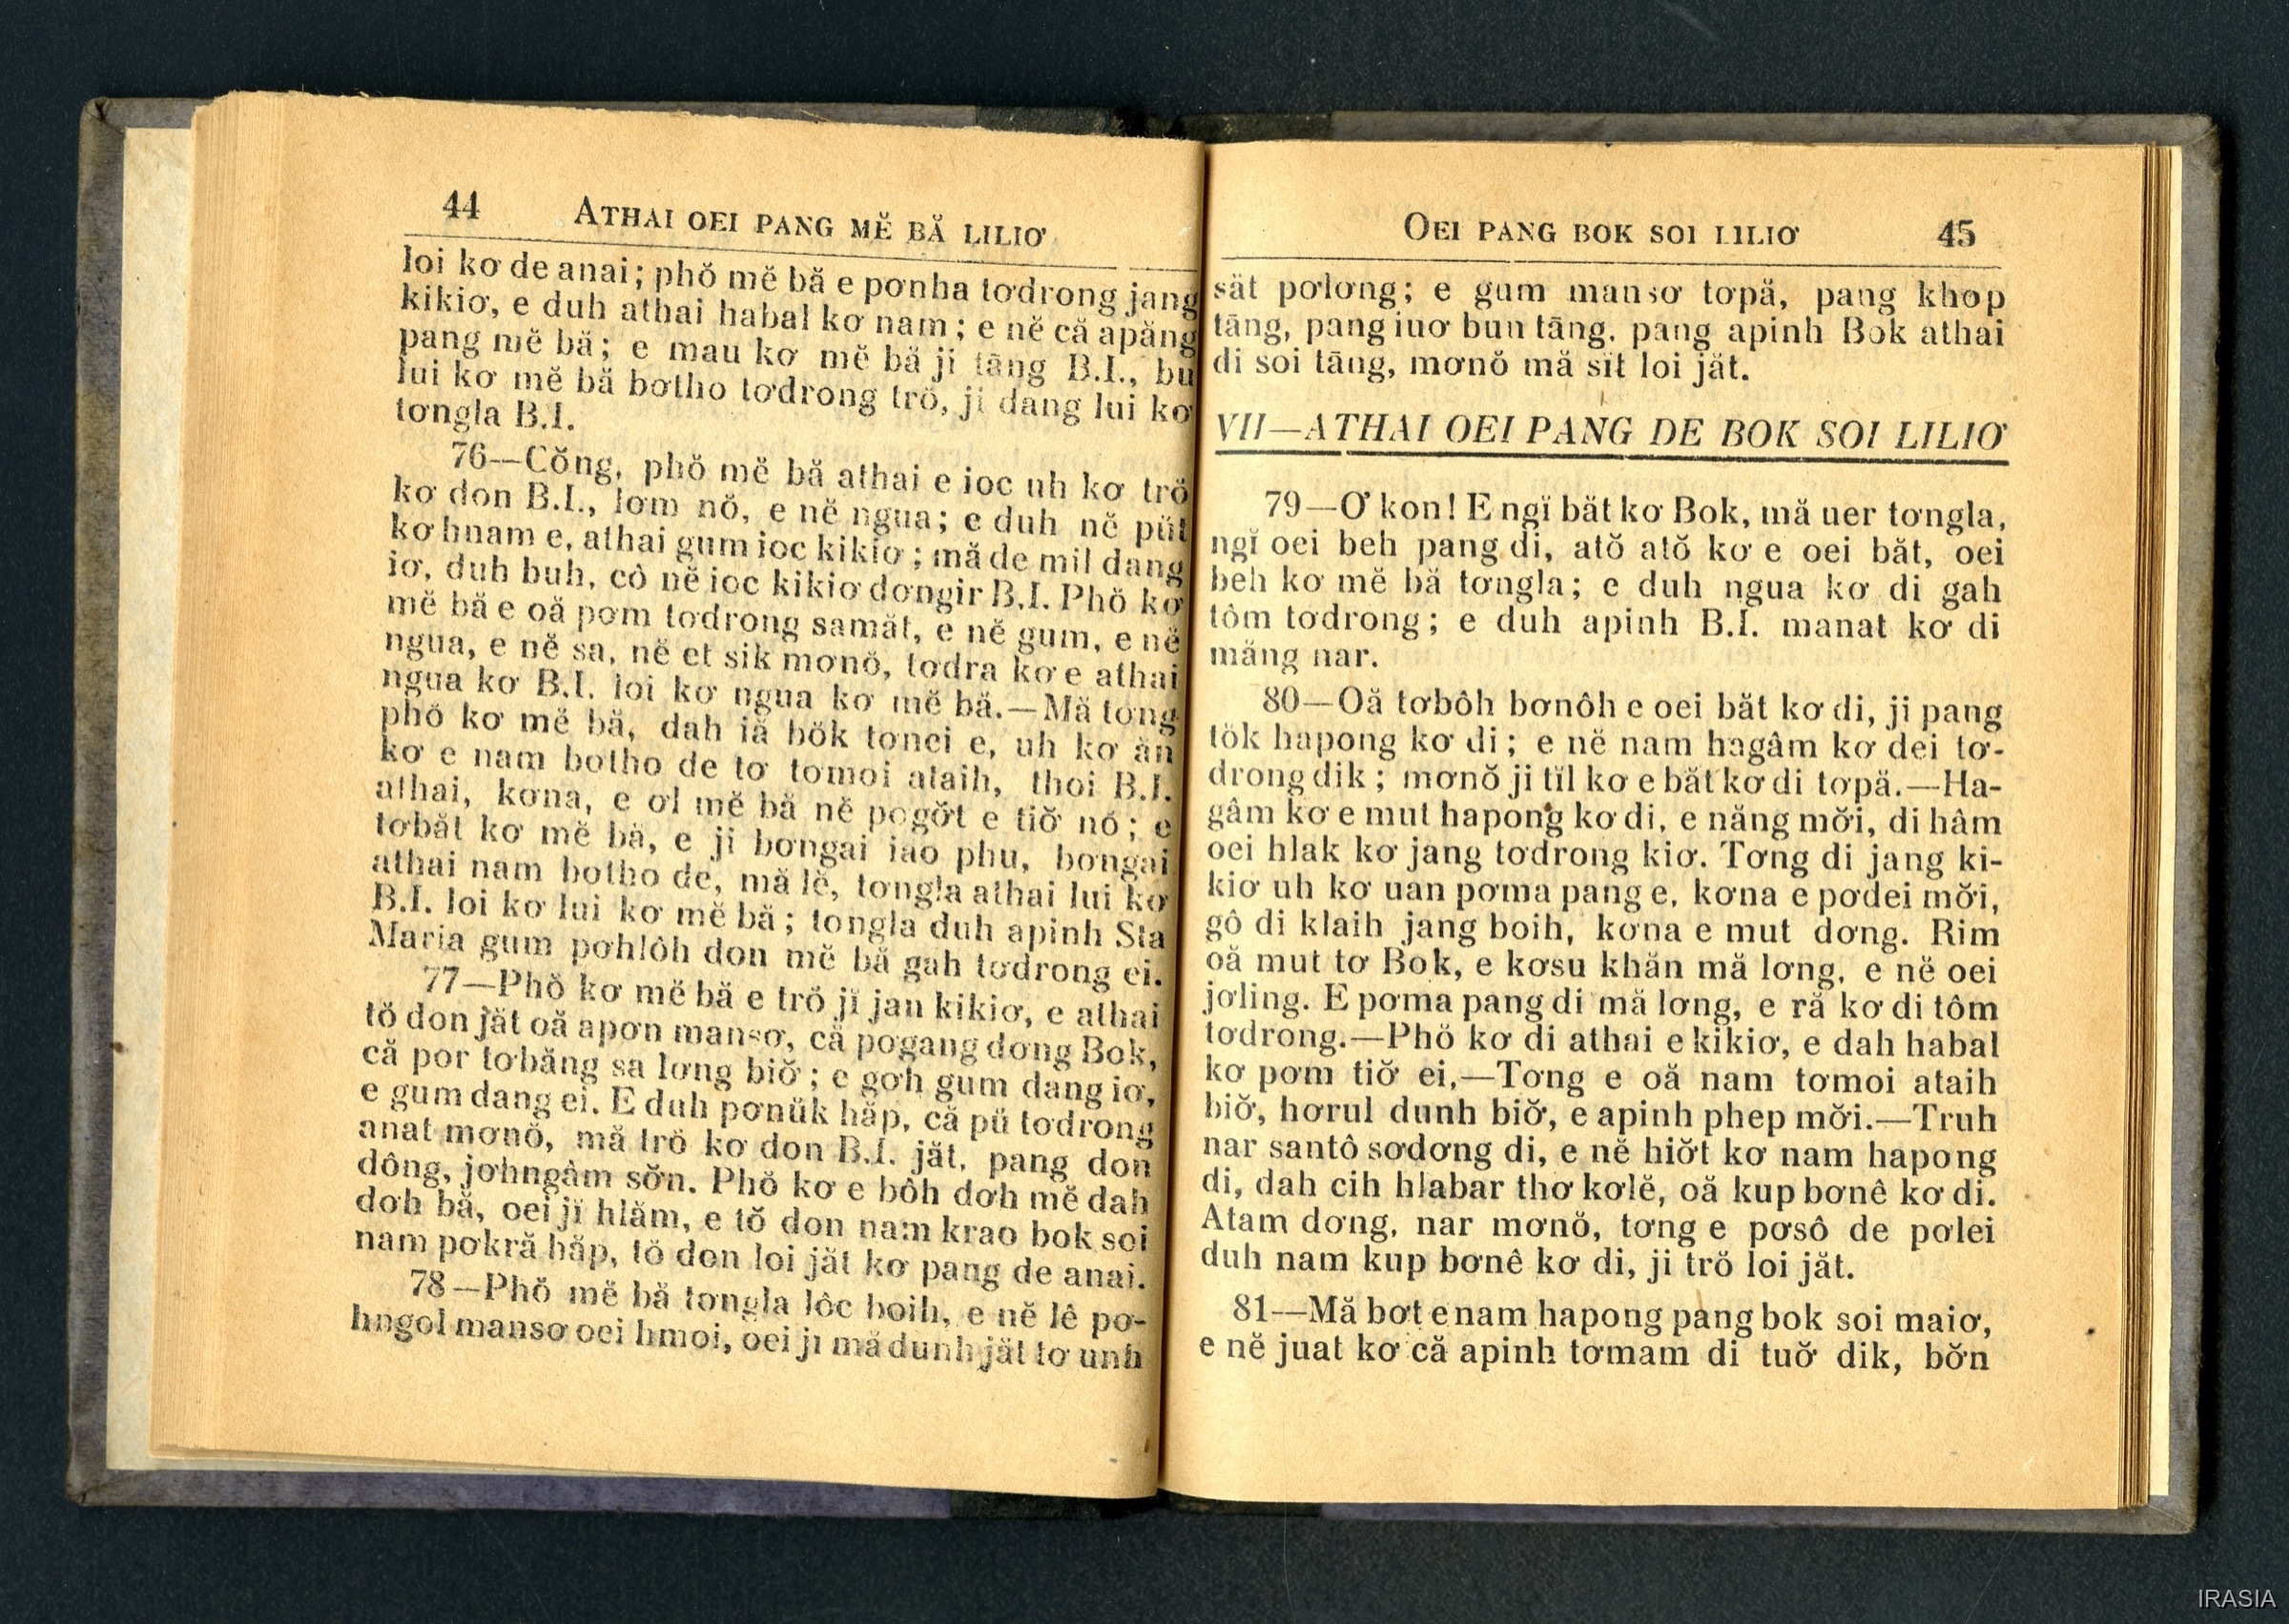 44 ATHAI OEI PANG MĔ BĂ LILIƠ
loi kơ de anai; phŏ mĕ bă e pơnha tơdrong jang
kikiơ, e duh athai habal kơ nam; e nĕ că apăng
pang mĕ bă; e mau kơ mĕ bă ji tāng B.I., bu
lui kơ mĕ bă bơtho tơdrong trŏ, ji dang lui kơ
tơngla B.I.
76—Cŏng, phŏ mĕ bă athai e ioc uh kơ trŏ
kơ don B.I., lơm nŏ, e nĕ ngua; e duh nĕ pŭt
kơ hnam e, athai gum ioc kikiơ; mă de mil dang
iơ, duh buh, cô nĕ ioc kikiơ dơngir B.I. Phŏ kơ
mĕ bă e oă pơm tơdrong samăt, e nĕ gum, e nĕ
ngua, e nĕ sa, nĕ et sik mơnŏ, tơdra kơ e athai
ngua kơ B.I. loi kơ ngua kơ mĕ bă.—Mă tơng
phŏ kơ mĕ bă, dah iă bŏk tơnei e, uh kơ ăn
kơ e nam bơtho de tơ tơmoi ataih, thoi B.I.
athai, kơna, e ơl mĕ bă nĕ pơgơ̆t e tiơ̆ nŏ; e
tơbăt kơ mĕ bă, e ji bơngai iao phu, bơngai
athai nam bơtho de, mă lĕ, tơngla athai lui kơ
B.I. loi kơ lui kơ mĕ bă; tơngla duh apinh Sta
Maria gum pơhlôh don mĕ bă gah tơdrong ei.
77—Phŏ kơ mĕ bă e trŏ jĭ jan kikiơ, e athai
tŏ don jăt oă apơn mansơ, că pơgang dơng Bok,
că por tơbăng sa lơng biơ̆; e gơh gum dang iơ,
e gum dang ei. E duh pơnŭk hăp, că pŭ tơdrong
anat mơnŏ, mă trŏ kơ don B.I. jăt, pang don
dông, jơhngâm sơ̆n. Phŏ kơ e bôh dơh mĕ dah
dơh bă, oei jĭ hlăm, e tŏ don nam krao bok soi
nam pơkră hăp, tŏ don loi jăt kơ pang de anai.
78—Phŏ mĕ bă tơngla lôc boih, e nĕ lê pơ-
hngol mansơ oei hmoi, oei ji mă dunh jăt tơ unh
OEI PANG BOK SOI LILIƠ 45
săt pơlơng; e gum mansơ tơpă, pang khop
tāng, pang iuơ bun tāng, pang apinh Bok athai
di soi tāng, mơnŏ mă sĭt loi jăt.
VII—ATHAI OEI PANG DE BOK SOI LILIƠ
79—Ơ kon! E ngĭ băt kơ Bok, mă uer tơngla,
ngĭ oei beh pang di, atŏ atŏ kơ e oei băt, oei
beh kơ mĕ bă tơngla; e duh ngua kơ di gah
tôm tơdrong; e duh apinh B.I. manat kơ di
măng nar.
80—Oă tơbôh bơnôh e oei băt kơ di, ji pang
tŏk hapong kơ di; e nĕ nam hagâm kơ dei tơ-
drong dik; mơnŏ ji tĭl kơ e băt kơ di tơpă.—Ha-
gâm kơ e mut hapong kơ di, e năng mơ̆i, di hâm
oei hlak kơ jang tơdrong kiơ. Tơng di jang ki-
kiơ uh kơ uan pơma pang e, kơna e pơdei mơ̆i,
gô di klaih jang boih, kơna e mut dơng. Rim
oă mut tơ Bok, e kơsu khăn mă lơng, e nĕ oei
jơling. E pơma pang di mă lơng, e ră kơ di tôm
tơdrong.—Phŏ kơ di athai e kikiơ, e dah habal
kơ pơm tiơ̆ ei,—Tơng e oă nam tơmoi ataih
biơ̆, hơrul dunh biơ̆, e apinh phep mơ̆i.—Truh
nar santô sơdơng di, e nĕ hiơ̆t kơ nam hapong
di, dah cih hlabar thơ kơlĕ, oă kup bơnê kơ di.
Atam dơng, nar mơnŏ, tơng e pơsô de pơlei
duh nam kup bơnê kơ di, ji trŏ loi jăt.
81—Mă bơt e nam hapong pang bok soi maiơ,
e nĕ juat kơ că apinh tơmam di tuơ̆ dik, bơ̆n
IRASIA